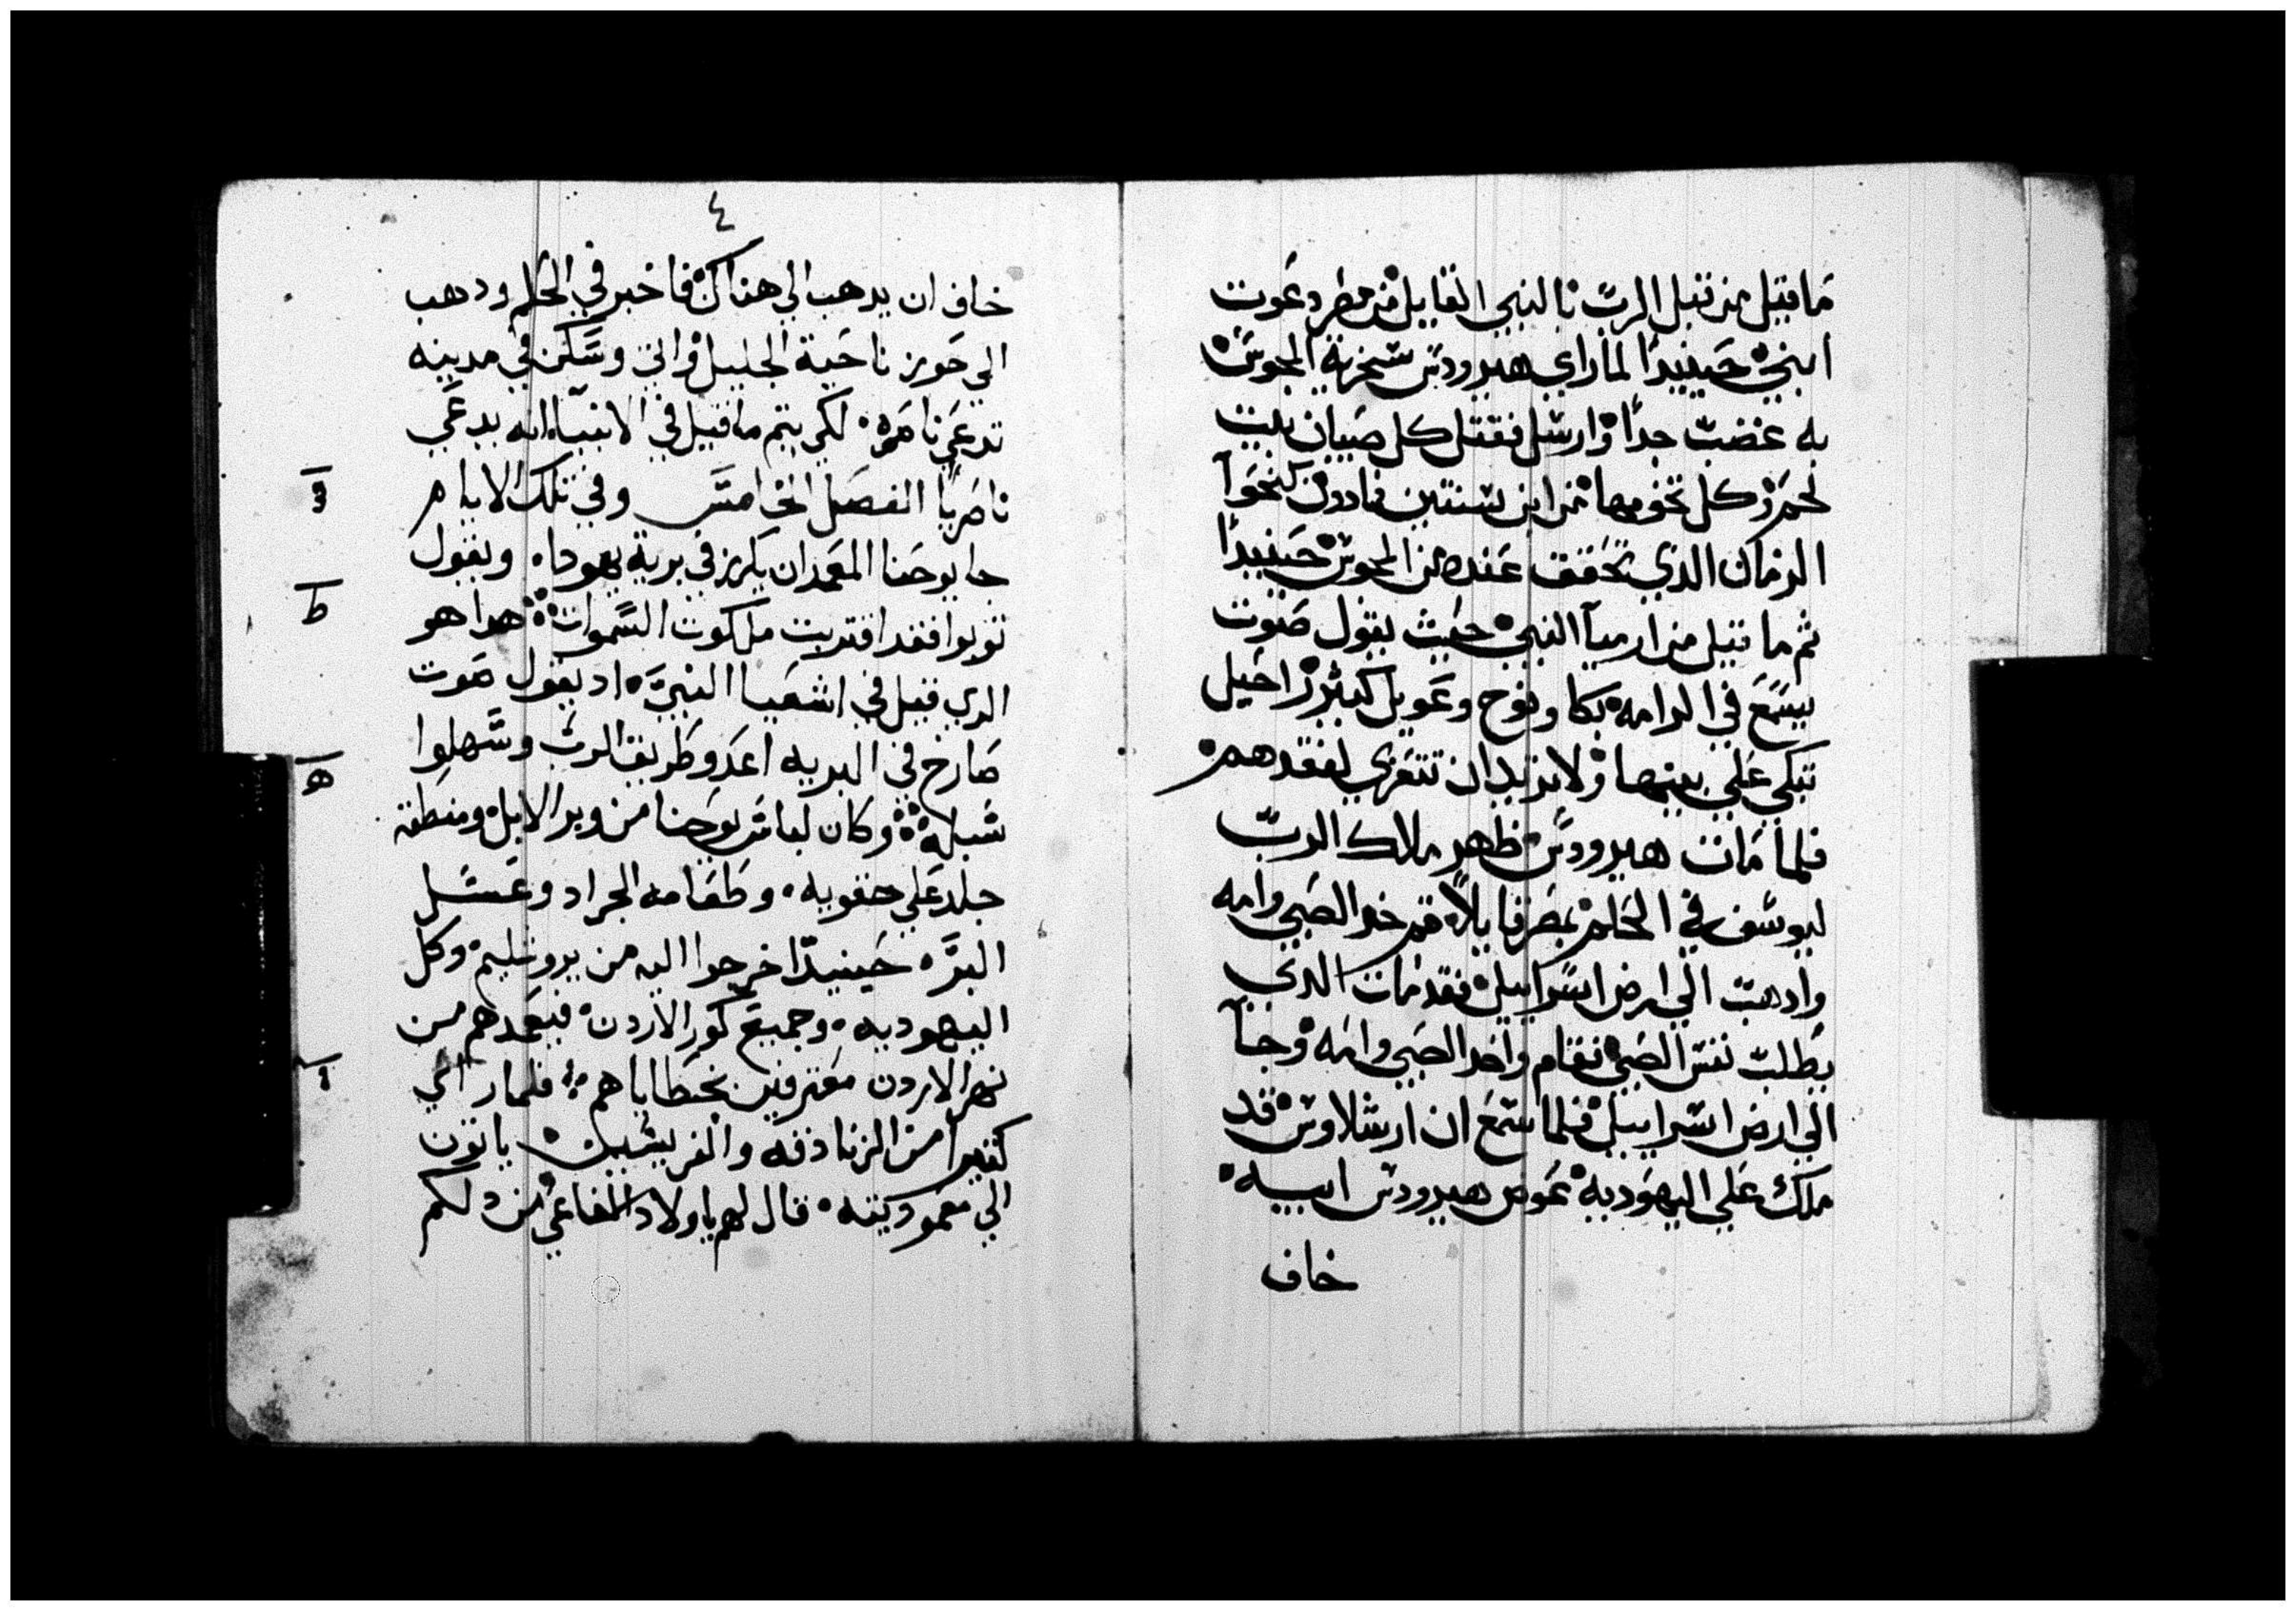 ما قيل من قبل الرب بالنبي القايل من مصر دعوت
ابني حينيدًا لما راي هيرودس سخرية المجوس
به غضب جدًا وارسل فقتل كل صبيان بيت
لحم وكل تخومها من ابن سنتين فادون كنحو
الزمان الدي تحقق عنده من المجوس حينيدًا
ثم ما قيل من ارميا النبي حيث يقول صوت
يسمع في الرامه بكا ونوح وعويل كثير راحيل
تبكي علي بينها ولا تريد ان تتعزي لفقدهم
فلما مات هيرودس ظهر ملاك الرب
ليوسف في الحلم بمصر قايلاً قم خد الصبي وامه
وادهب الي ارض اسراييل فقد مات الدي
يطلب نفس الصبي فقام واخد الصبي وامه وجا
الي ارض اسراييل فلما سمع ان ارشلاوس قد
ملك علي اليهوديه عوض هيرودس ابيه
خاف
٤
خاف ان يدهب الي هناك فاخبر في الحلم ودهب
الي حوز ناحية الجليل واتي وسكن في مدينه
تدعي ناصره لكي يتم ما قيل في الانبيا انه يدعي
ناصريًا الفصل الخامس وفي تلك الايام
جا يوحنا المعمدان يكرز في برية يهودا ويقول
توبوا فقد اقتربت ملكوت السموات هدا هو
الدي قيل في اشعيا النبي اد يقول صوت
صارخ في البريه اعدو طريق الرب وسهلوا
سبله وكان لباس يوحنا من وبر الابل ومنطقة
جلد علي حقويه وطعامه الجراد وعسل
البر حينيدًا خرجوا اليه من يروشليم وكل
اليهوديه وجميع كور الاردن فيعمدهم من
نهر الاردن معترفين بخطاياهم فلما راي
كثيرا من الزنادقه والفريسيين ياتون
الي معموديته قال لهم يا ولاد الافاعي من دلكم
و
ط
ه